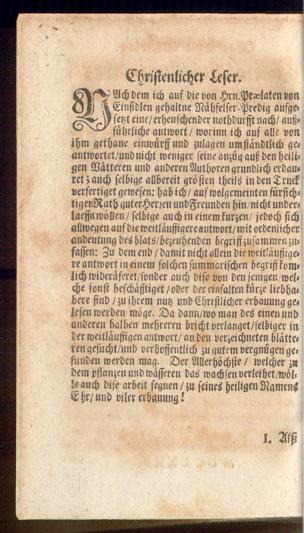 Christenlicher Leser.
NAch dem ich auf die von Hrn. Prælaten von
Einsidlen gehaltne Näfelser-Predig aufge-
setzt eine/ erheuschender nothdurfft nach/ auß-
führliche antwort/ worinn ich auf alle von
ihm gethane einwürff und zulagen umständtlich ge-
antwortet/ und nicht weniger seine anzüg auß den heili-
gen Vätteren und anderen Authoren grundlich erdau-
ret; auch selbige arbereit größten theils in den Truck
verfertiget gewesen; hab ich/ auf wolgemeinten fürsich-
tigen Rath guter Herren und Freunden hin/ nicht under-
lassen wöllen/ selbige auch in einem kurzen/ jedoch sich
allwegen auf die weitläuffigere antwort/ mit ordenlicher
andeutung des blats/ bezeuhenden begriff zusammen zu-
fassen: Zu dem end/ damit nicht allein die weitläuffige-
re antwort in einem solchen summarischen begriff kom-
lich wideräferet/ sonder auch dise von den jenigen/ wel-
che sonst beschäfftiget/ oder der einfalten kürze liebha-
bere sind/ zu ihrem nutz und Christlicher erbauung ge-
lesen werden möge. Da dann/ wo man des einen und
anderen halben mehreren bricht verlanget/ selbiger in
der weitläuffigen antwort/ an den verzeichneten blätte-
ren gesucht/ und verhoffentlich zu gutem vergnügen ge-
funden werden mag. Der Allerhöchste/ welcher zu
dem pflanzen und wässeren das wachsen verleihet/ wöl-
le auch dise arbeit segnen/ zu seines heiligen Namens
Ehr/ und viler erbauung!
I. Alß